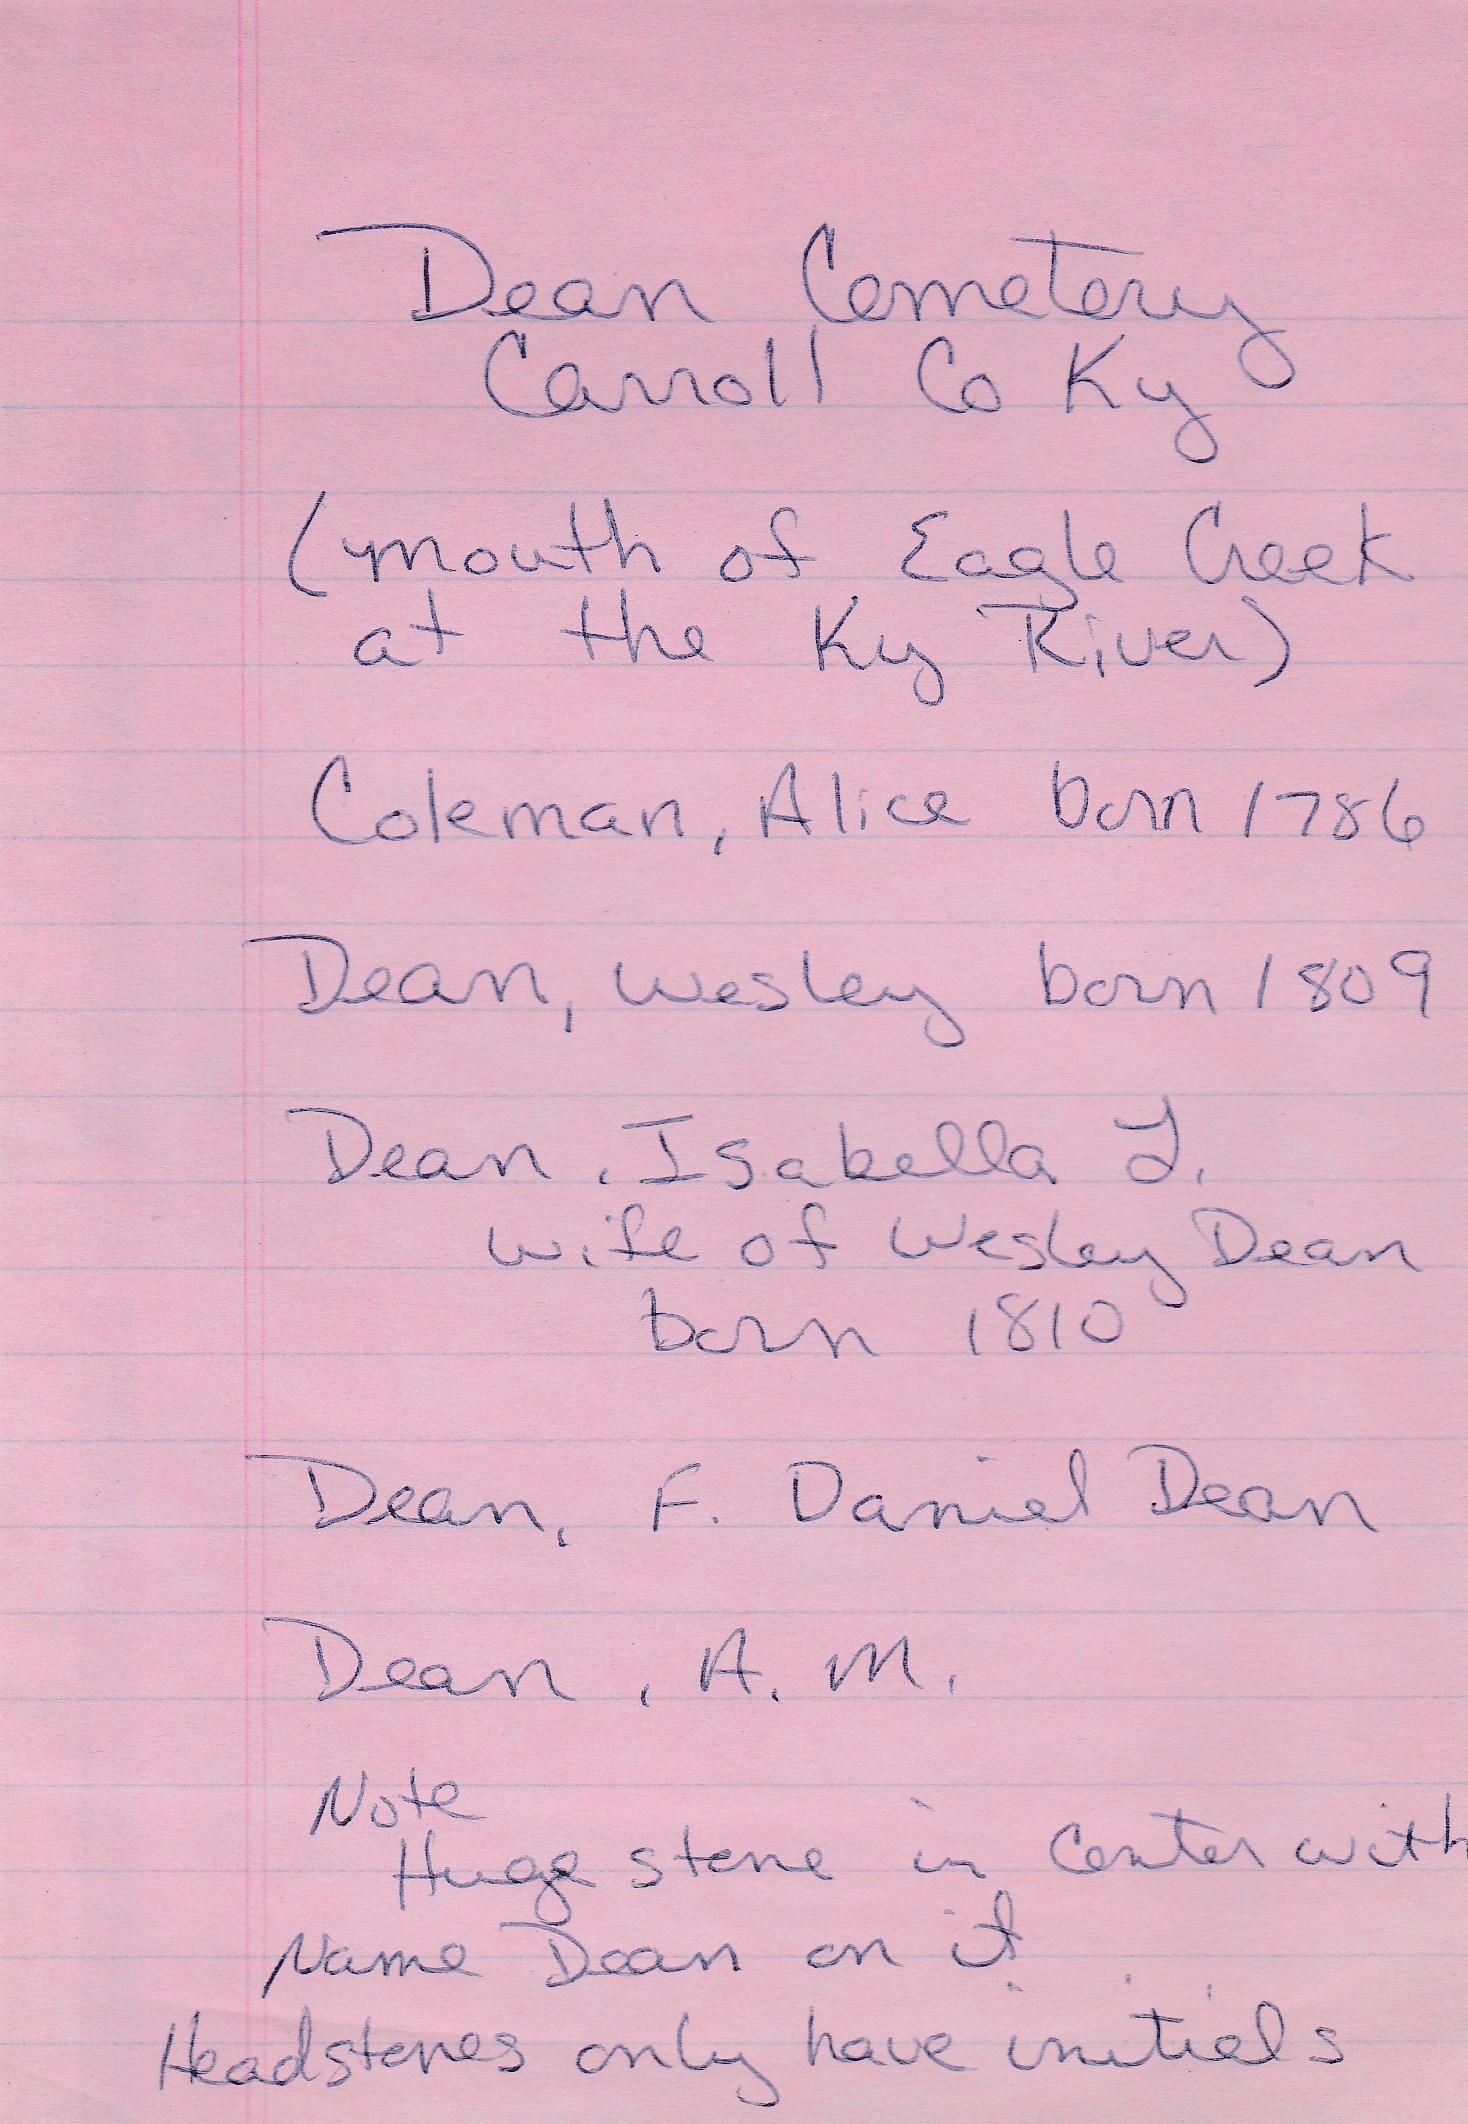 Dean Cemetery
Carroll Co Ky
(mouth of Eagle Creek
at the Ky River)
Coleman, Alice born 1786
Dean, Wesley born 1809
Dean, Isabella
wife of Wesley Dean
born 1810
Dean, F. Daniel Dean
Dean, A. M.
Note
Huge stone in Center with
Name Dean on it
Headstones only have initials